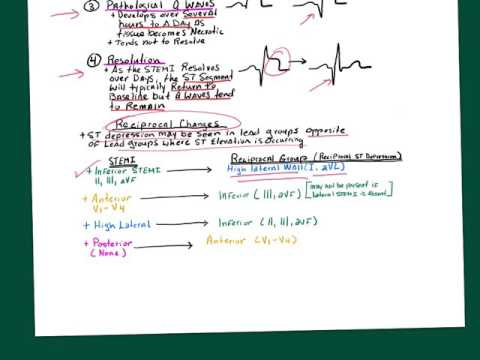 ③ Pathological Q Waves
+ Develops over Several
hours to A Day As
tissue becomes Necrotic
+ Tends not to Resolve
④ Resolution
+ As the STEMI Resolves
over Days, the ST Segment
will typically Return to
Baseline but Q Waves tend
to Remain
Reciprocal Changes
+ ST depression may be seen in lead groups opposite
of Lead groups where ST Elevation is occurring.
STEMI Reciprocal Group (Reciprocal ST Depression)
+ Inferior STEMI High lateral Wall (I, aVL)
II, III, aVF
+ Anterior Inferior (III, aVF) [may not be present if
V1-V4 lateral STEMI is absent]
+ High Lateral Inferior (II, III, aVF)
+ Posterior Anterior (V1-V4)
(None)